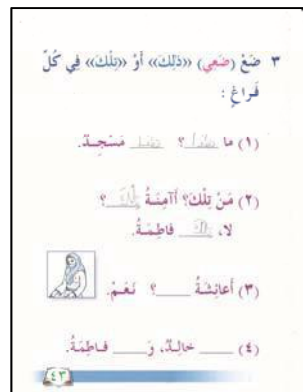 ٣ ضَعْ (ضَعِي) «ذٰلِكَ» أَوْ «تِلْكَ» فِي كُلِّ
فَرَاغٍ :
(١) مَا ____؟ ____ مَسْجِدٌ.
(٢) مَنْ تِلْكَ؟ أَآمِنَةُ تِلْكَ؟
لَا، تِلْكَ فَاطِمَةُ.
(٣) أَعَائِشَةُ ____؟ نَعَمْ.
(٤) ____ خَالِدٌ، وَ____ فَاطِمَةُ.
٤٣